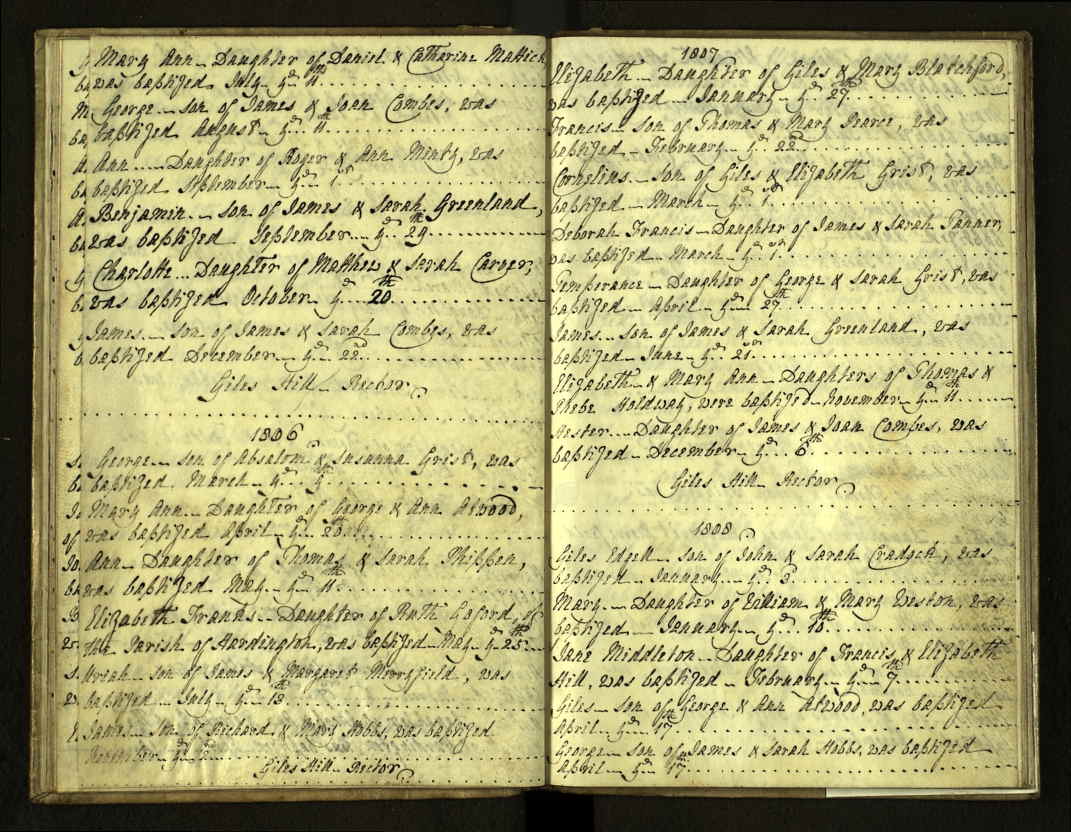 Mary Ann - Daughter of Daniel & Catharine Mattick
was baptized July ye 11th
George - son of James & Joan Combes, was
baptized August ye 11th
Ann - Daughter of Roger & Ann Minty, was
baptized September ye 1st
Benjamin - son of James & Sarah Greenland,
was baptized September ye 29th
Charlotte - Daughter of Matthew & Sarah Carver,
was baptized October ye 20th
James - son of James & Sarah Combes, was
baptized December ye 22d
Giles Hill - Rector
1806
George - son of Absalom & Susanna Grist, was
baptized March - ye
Mary Ann - Daughter of George & Ann Atwood,
was baptized April - ye 20th
Ann - Daughter of Thomas & Sarah Phippen,
was baptized May - ye 11th
Elizabeth Francis - Daughter of Ruth of
the Parish of Hardington, was baptized - May - ye 25th
Uriah - son of James & Margaret Merryfield, was
baptized - July - ye 13th
James - son of Richard & Mary Hobbs, was baptized
ye
Giles Hill - Rector
1807
Elizabeth - Daughter of Giles & Mary Blatchford,
was baptized - January - ye 27th
Francis - son of Thomas & Mary Pearce, was
baptized - February - ye 22d
Cornelius - son of Giles & Elizabeth Grist, was
baptized - March - ye 1st
Deborah Francis - Daughter of James & Sarah Tanner,
was baptized March - ye 1st
Temperance - Daughter of George & Sarah Grist, was
baptized - April - ye 27th
James - son of James & Sarah Greenland, was
baptized - June - ye 21st
Elizabeth - & Mary Ann - Daughters of Thomas &
Phebe Holdway, were baptized - November - ye 11th
Hester - Daughter of James & Joan Combes, was
baptized - December - ye 6th
Giles Hill - Rector
1808
Giles Edgell - son of John & Sarah Cradock, was
baptized - January - ye 3
Mary - Daughter of William & Mary Weston, was
baptized - January - ye 10th
Jane Middleton - Daughter of Francis & Elizabeth
Hill, was baptized - February - ye 7th
Giles - son of George & Ann Atwood, was baptized
April - ye 17th
George - son of James & Sarah Hobbs, was baptized
April - ye 17th